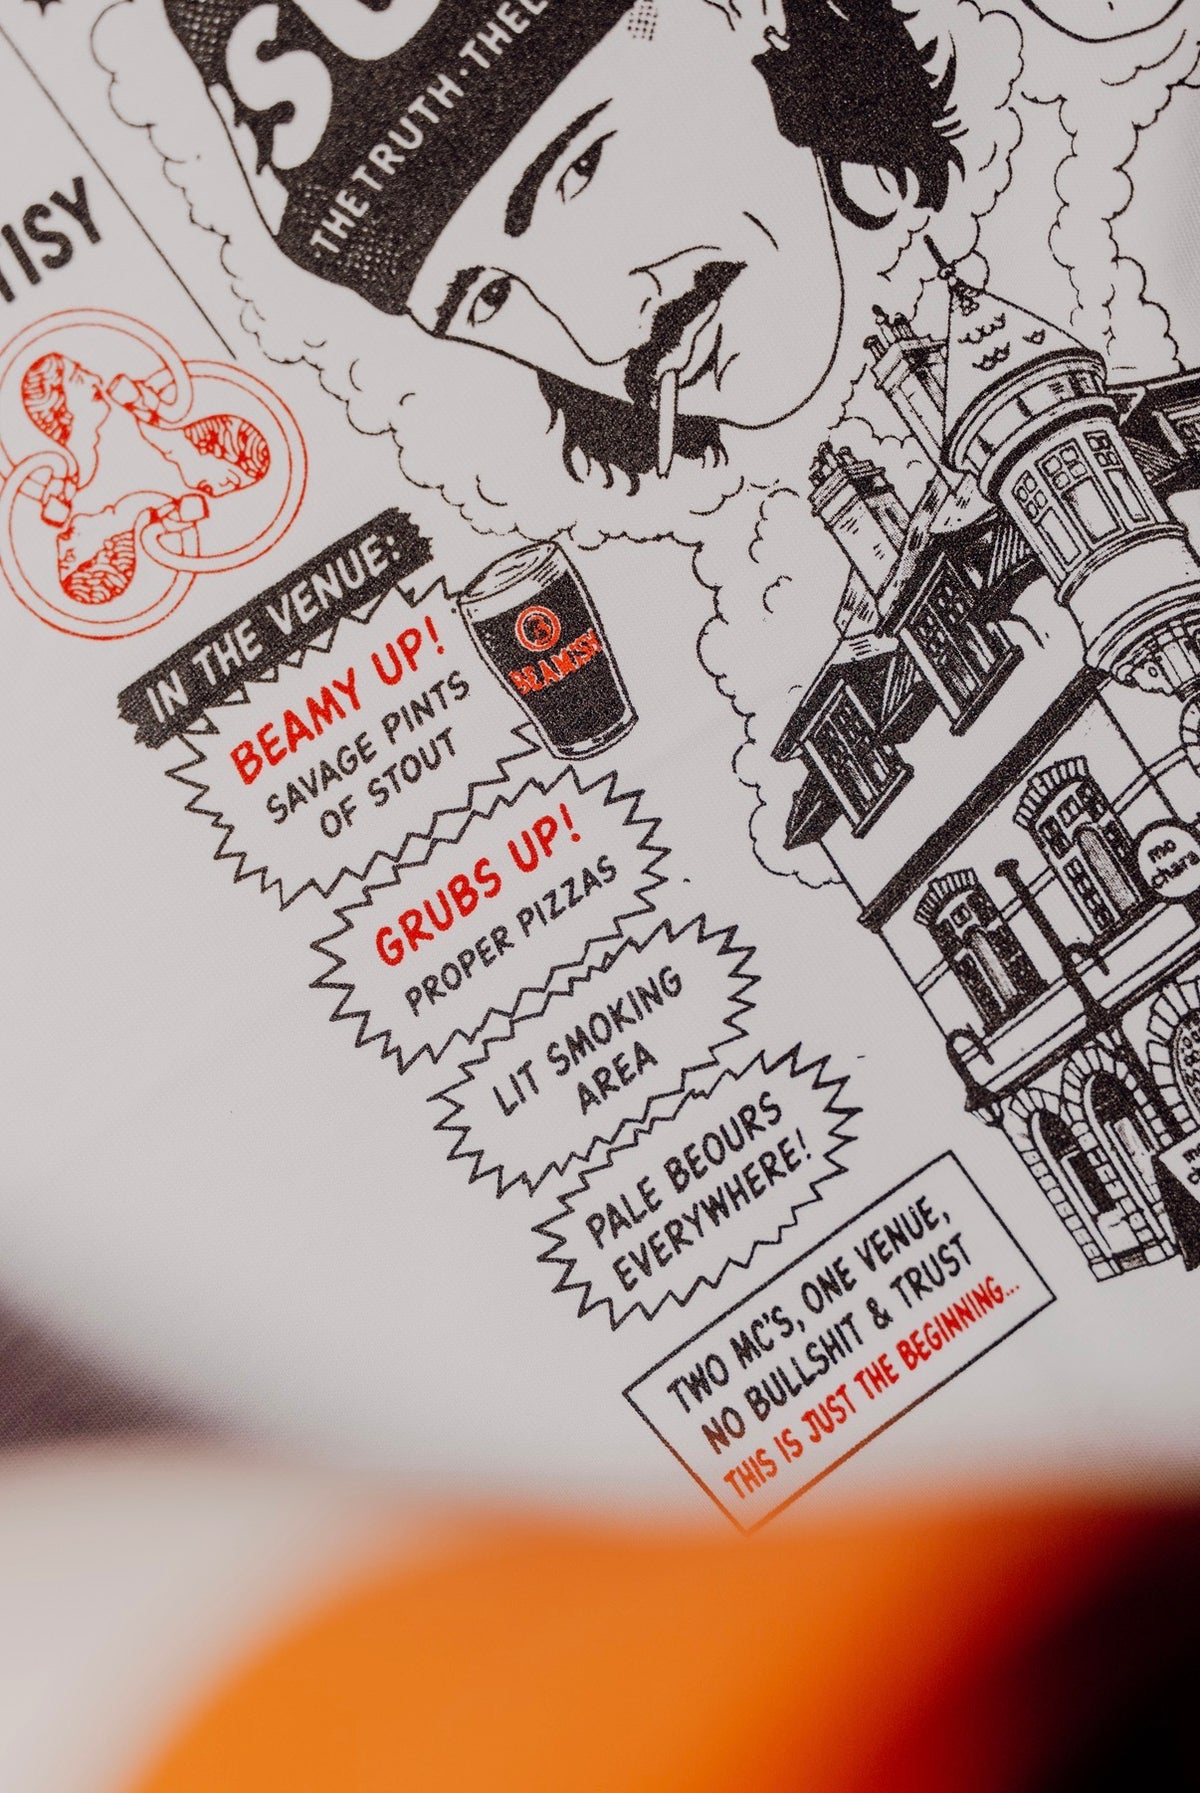 THE TRUTH · THE
IN THE VENUE:
BEAMY UP!
SAVAGE PINTS
OF STOUT
BEAMISH
GRUBS UP!
PROPER PIZZAS
LIT SMOKING
AREA
PALE BEOURS
EVERYWHERE!
mo
chara
TWO MC'S, ONE VENUE,
NO BULLSHIT & TRUST
THIS IS JUST THE BEGINNING...